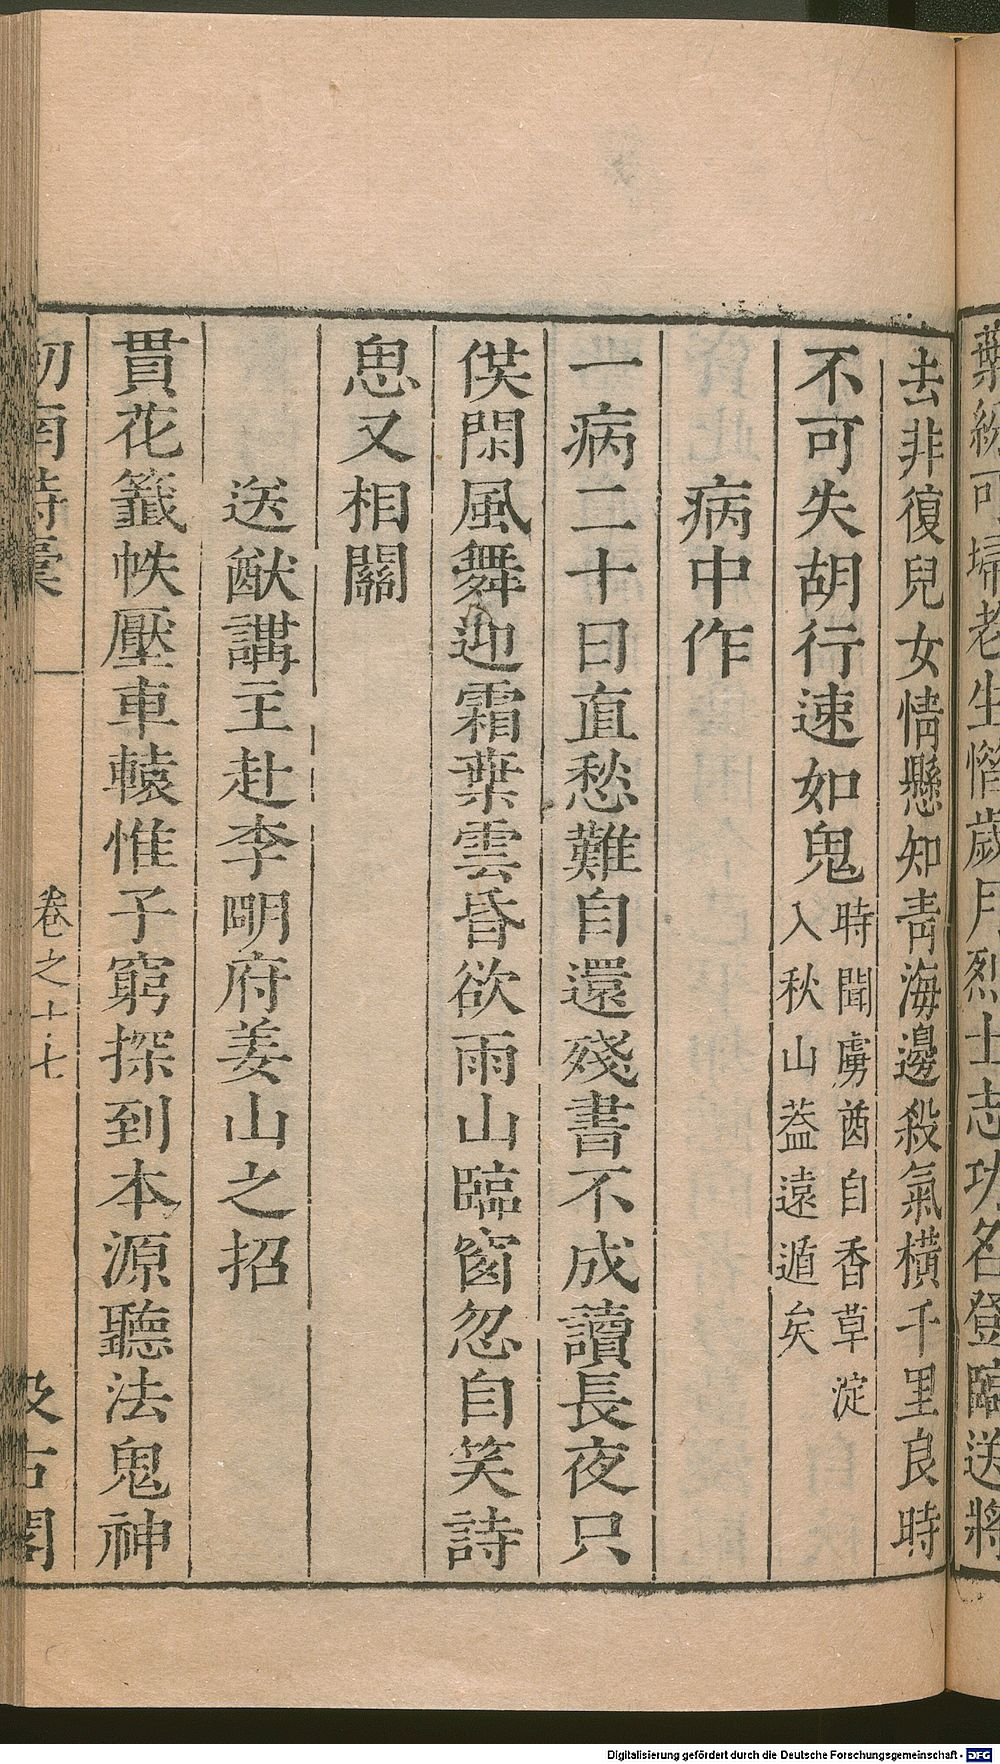 葉紛可掃老生惜歲月烈士志功名登臨送將
去非復兒女情懸知青海邊殺氣橫千里良時
不可失胡行速如鬼時聞虜酋自香草淀入秋山葢遠遁矣
病中作
一病二十日直愁難自還殘書不成讀長夜只
供閑風舞迎霜葉雲昏欲雨山臨窗忽自笑詩
思又相關
送猷講主赴李明府姜山之招
貫花籤帙壓車轅惟子窮探到本源聽法鬼神
劒南詩稾 卷之十七 汲古閣
Digitalisierung gefördert durch die Deutsche Forschungsgemeinschaft - DFG